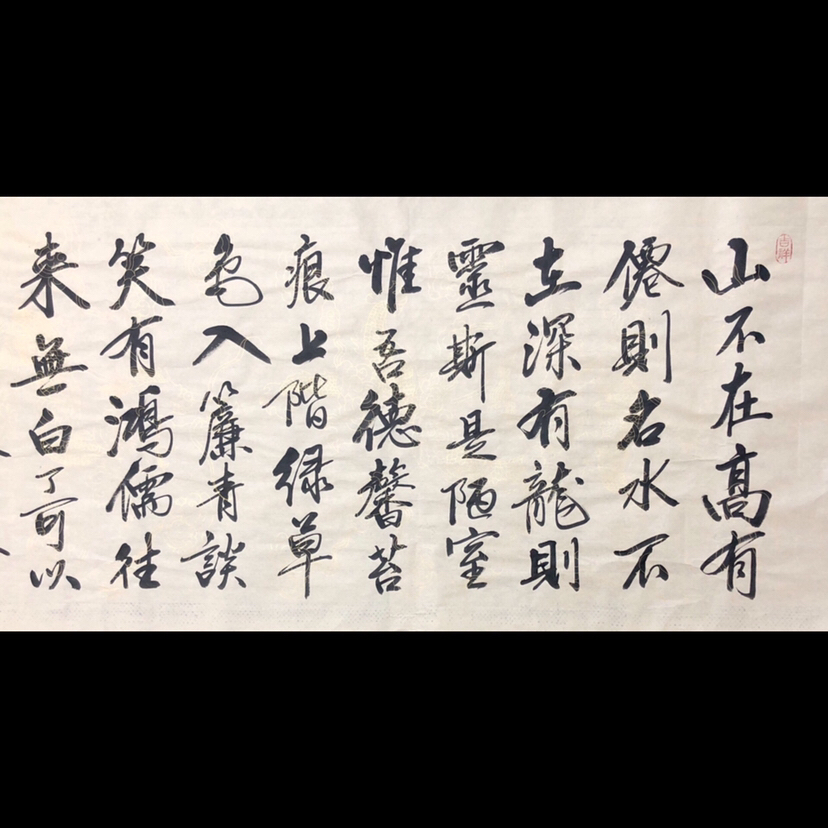 吉祥
山不在髙有
僊則名水不
在深有龍則
靈斯是陋室
惟吾德馨苔
痕上階绿草
色入簾青談
笑有鴻儒往
来無白丁可以